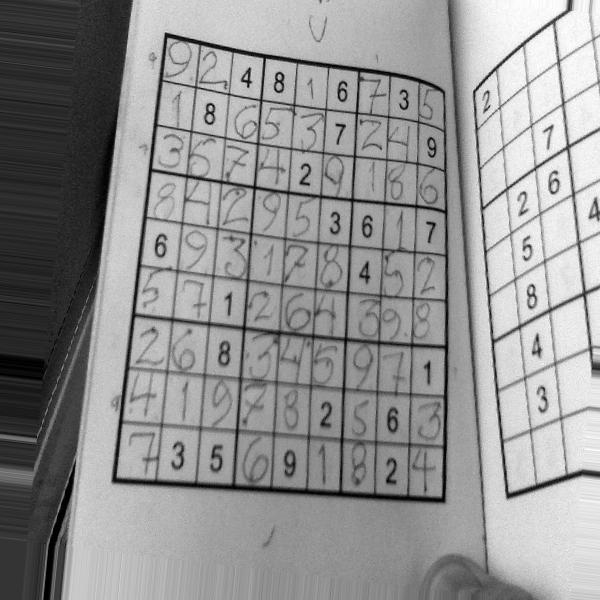 9 2 4 8 1 6 7 3 5
1 8 6 5 3 7 2 4 9
3 5 7 4 2 9 1 8 6
8 4 2 9 5 3 6 1 7
6 9 3 1 7 8 4 5 2
5 7 1 2 6 4 3 9 8
2 6 8 3 4 5 9 7 1
4 1 9 7 8 2 5 6 3
7 3 5 6 9 1 8 2 4
2
7
2 6
5 4
8
4
3